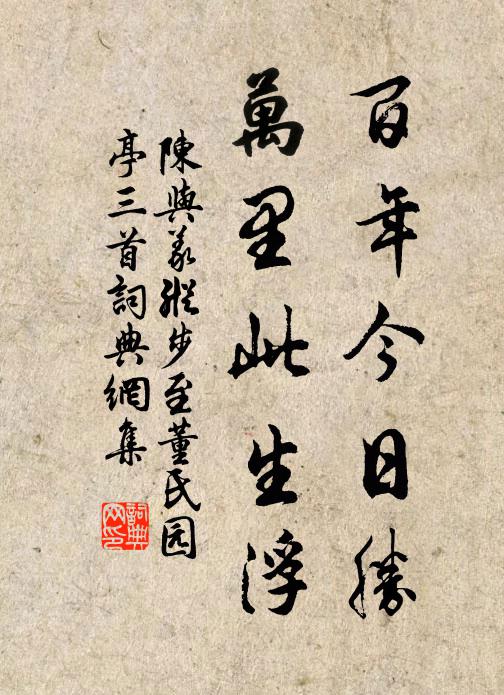 百年今日勝
萬里此生浮
陳與義縱步至董氏园
亭三首詞典網集
詞典
网印